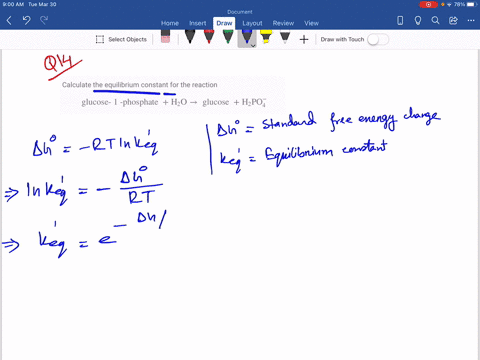 9:00 AM Tue Mar 30
78%
Document
Home Insert Draw Layout Review View
Select Objects
Draw with Touch
Q14
Calculate the equilibrium constant for the reaction
glucose- 1 -phosphate + H₂O → glucose + H₂PO₄⁻
ΔG° = -RT ln K'eq
ΔG° = Standard free energy change
K'eq = Equilibrium constant
⇒ ln K'eq = - ΔG°/RT
⇒ K'eq = e^-ΔG/